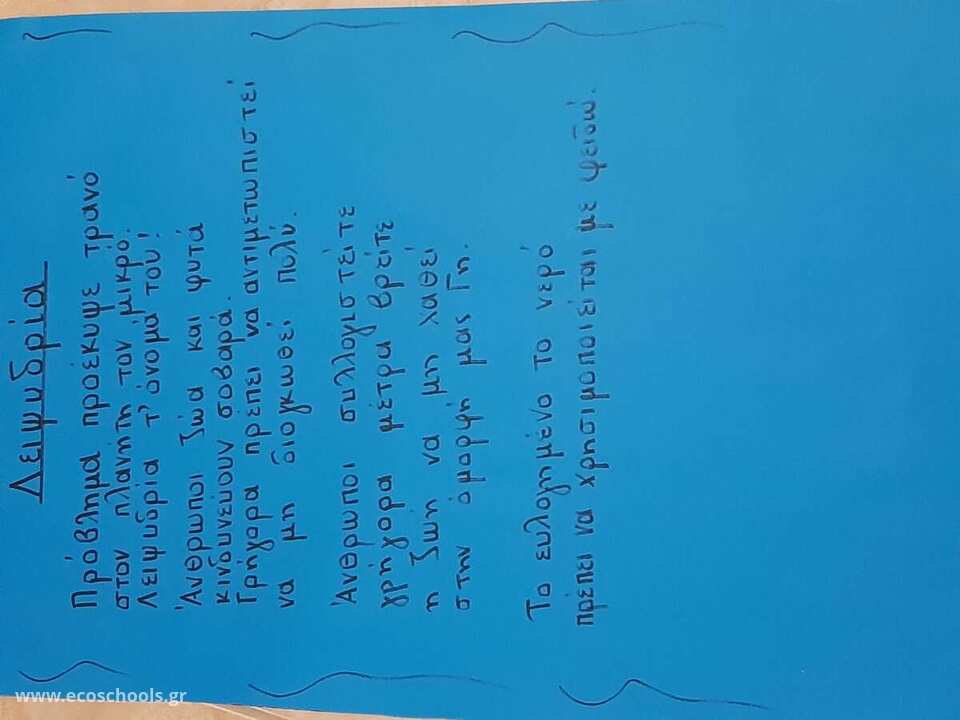 Λειψυδρία
Πρόβλημα προέκυψε τρανό
στον πλανήτη τον μικρό.
Λειψυδρία τ' όνομά του!
Άνθρωποι ζώα και φυτά
κινδυνεύουν σοβαρά.
Γρήγορα πρέπει να αντιμετωπιστεί
να μη διογκωθεί πολύ.
Άνθρωποι συλλογιστείτε
γρήγορα μέτρα βρείτε
η ζωή να μη χαθεί
στην όμορφή μας Γη.
Το ευλογημένο το νερό
πρέπει να χρησιμοποιείται με φειδώ.
www.ecoschools.gr